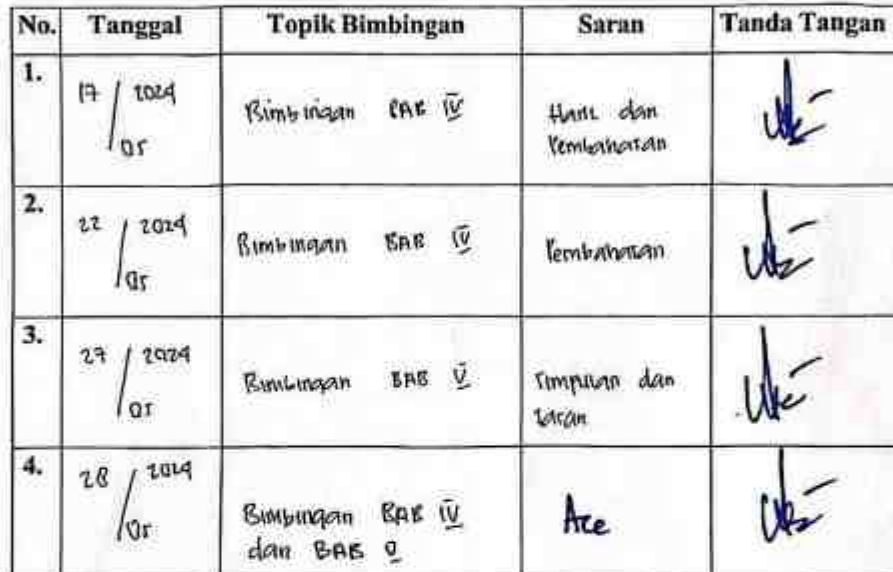 No. Tanggal Topik Bimbingan Saran Tanda Tangan
1. 17 / 2024 Bimbingan BAB IV Hasil dan
05 Pembahasan
2. 22 / 2024 Bimbingan BAB IV Pembahasan
05
3. 27 / 2024 Bimbingan BAB V Simpulan dan
05 saran
4. 28 / 2024 Bimbingan BAB IV Acc
05 dan BAB V